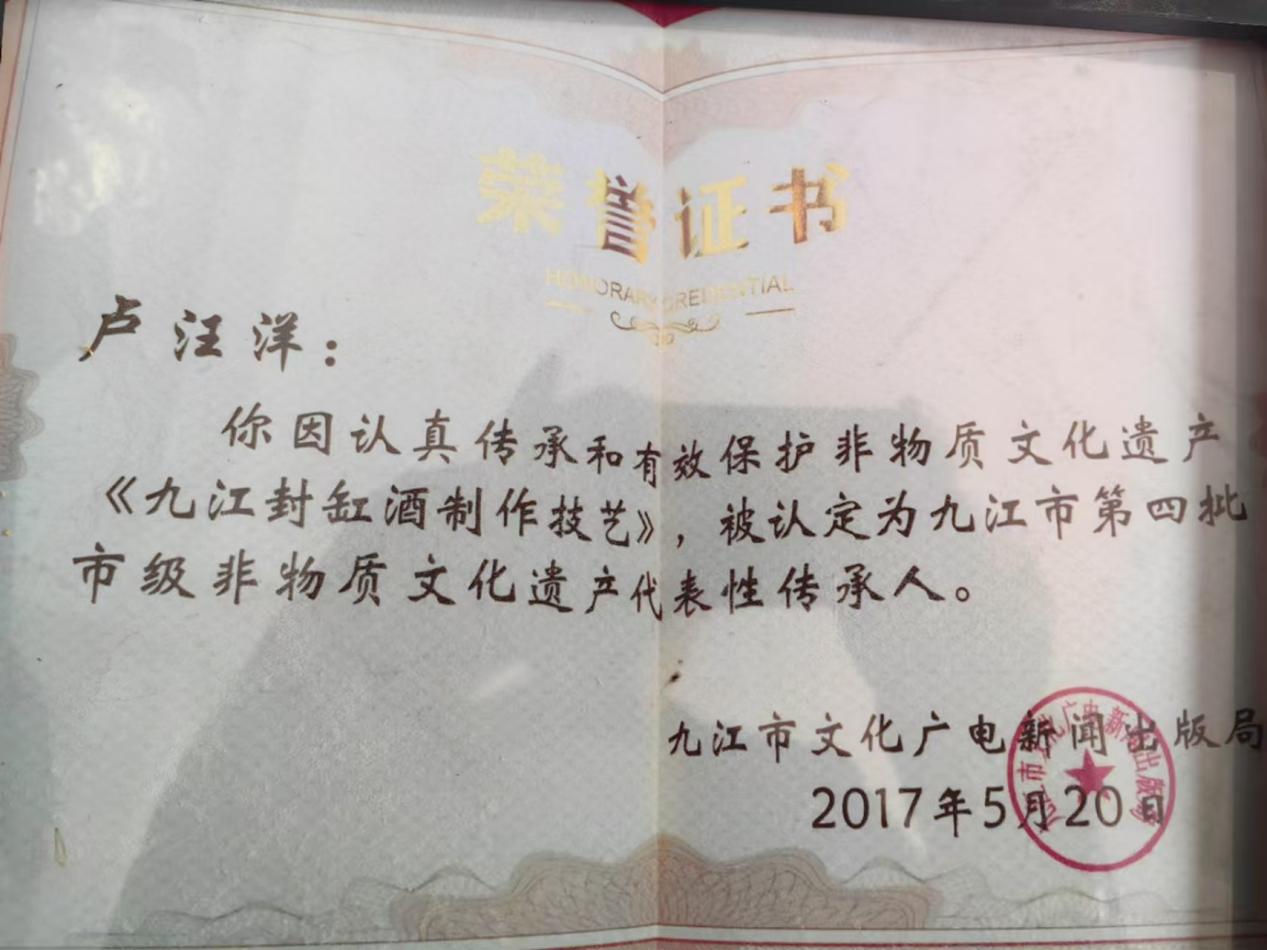 荣誉证书
HONORARY CREDENTIAL
卢汪洋：
你因认真传承和有效保护非物质文化遗产
《九江封缸酒制作技艺》，被认定为九江市第四批
市级非物质文化遗产代表性传承人。
九江市文化广电新闻出版局
2017年5月20日
九江市文化广电新闻出版局